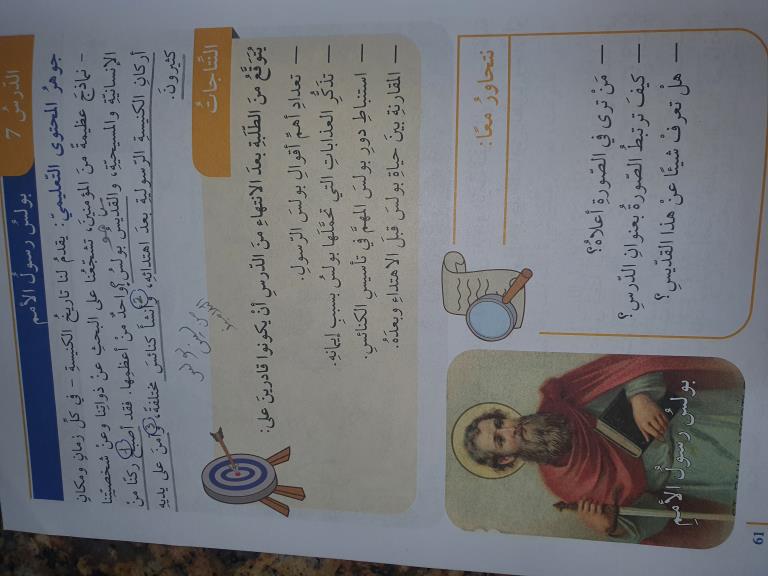 الدَّرسُ 7
بولسُ رسولُ الأممِ
جوهرُ المحتوى التَّعليميّ: يقدمُ لنا تاريخُ الكنيسة - في كلِّ زمانٍ ومكانٍ
- نماذجَ عظيمةً منَ المؤمنينَ، تشجّعُنا على البحثِ عن ذواتِنا وعنْ شخصيّتِنا
الإنسانيّةِ والمسيحيّةِ، والقدّيسُ بولسُ واحدٌ منْ أعظمِها. فقد أصبحَ ركنًا منْ
أركانِ الكنيسةِ الرّسوليةِ بعدَ اهتدائِهِ، وأنشأَ كنائسَ مختلفةً، وآمنَ على يديهِ
كثيرونَ.
النَّتاجاتُ
يُتوَقَّعُ منَ الطّلبةِ بعدَ الانتهاءِ منَ الدّرسِ أنْ يكونوا قادرينَ على:
— تعدادِ أهمِّ أقوالِ بولسَ الرّسولِ.
— تذكُّرِ العذاباتِ التي تحمَّلَها بولسُ بسببِ إيمانِهِ.
— استنباطِ دورِ بولسَ المهمِّ في تأسيسِ الكنائسِ.
— المقارنةِ بينَ حياةِ بولسَ قبلَ الاهتداءِ وبعدَهُ.
نتحاورُ معًا:
— مَنْ ترى في الصّورةِ أعلاهُ؟
— كيفَ ترتبطُ الصّورةُ بعنوانِ الدّرسِ؟
— هلْ تعرفُ شيئًا عنْ هذا القدّيسِ؟
بولسُ رسولُ الأممِ
61